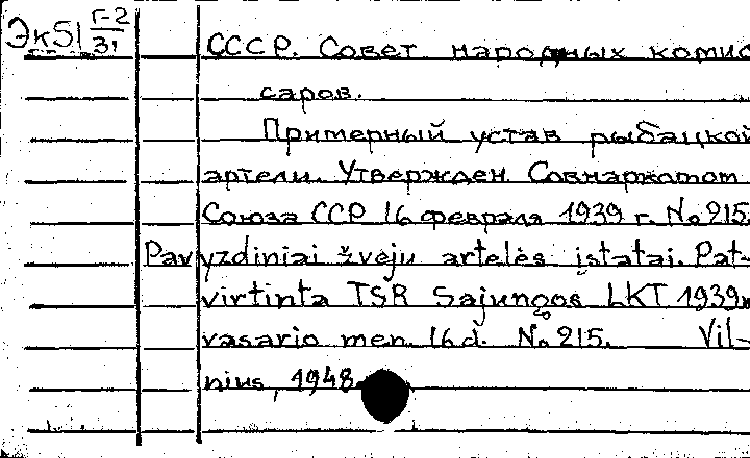 Эк51 Г-2
31
СССР. Совет народных комис
саров.
Примерный устав рыбацкой
артели. Утвержден Совнаркомом
Союза ССР 16 февраля 1939 г. № 215.
Pavyzdiniai žvejų artelės įstatai. Pat-
virtinta TSR Sąjungos LKT 1939 m
vasario mėn. 16 d. № 215. Vil-
nius, 1948.